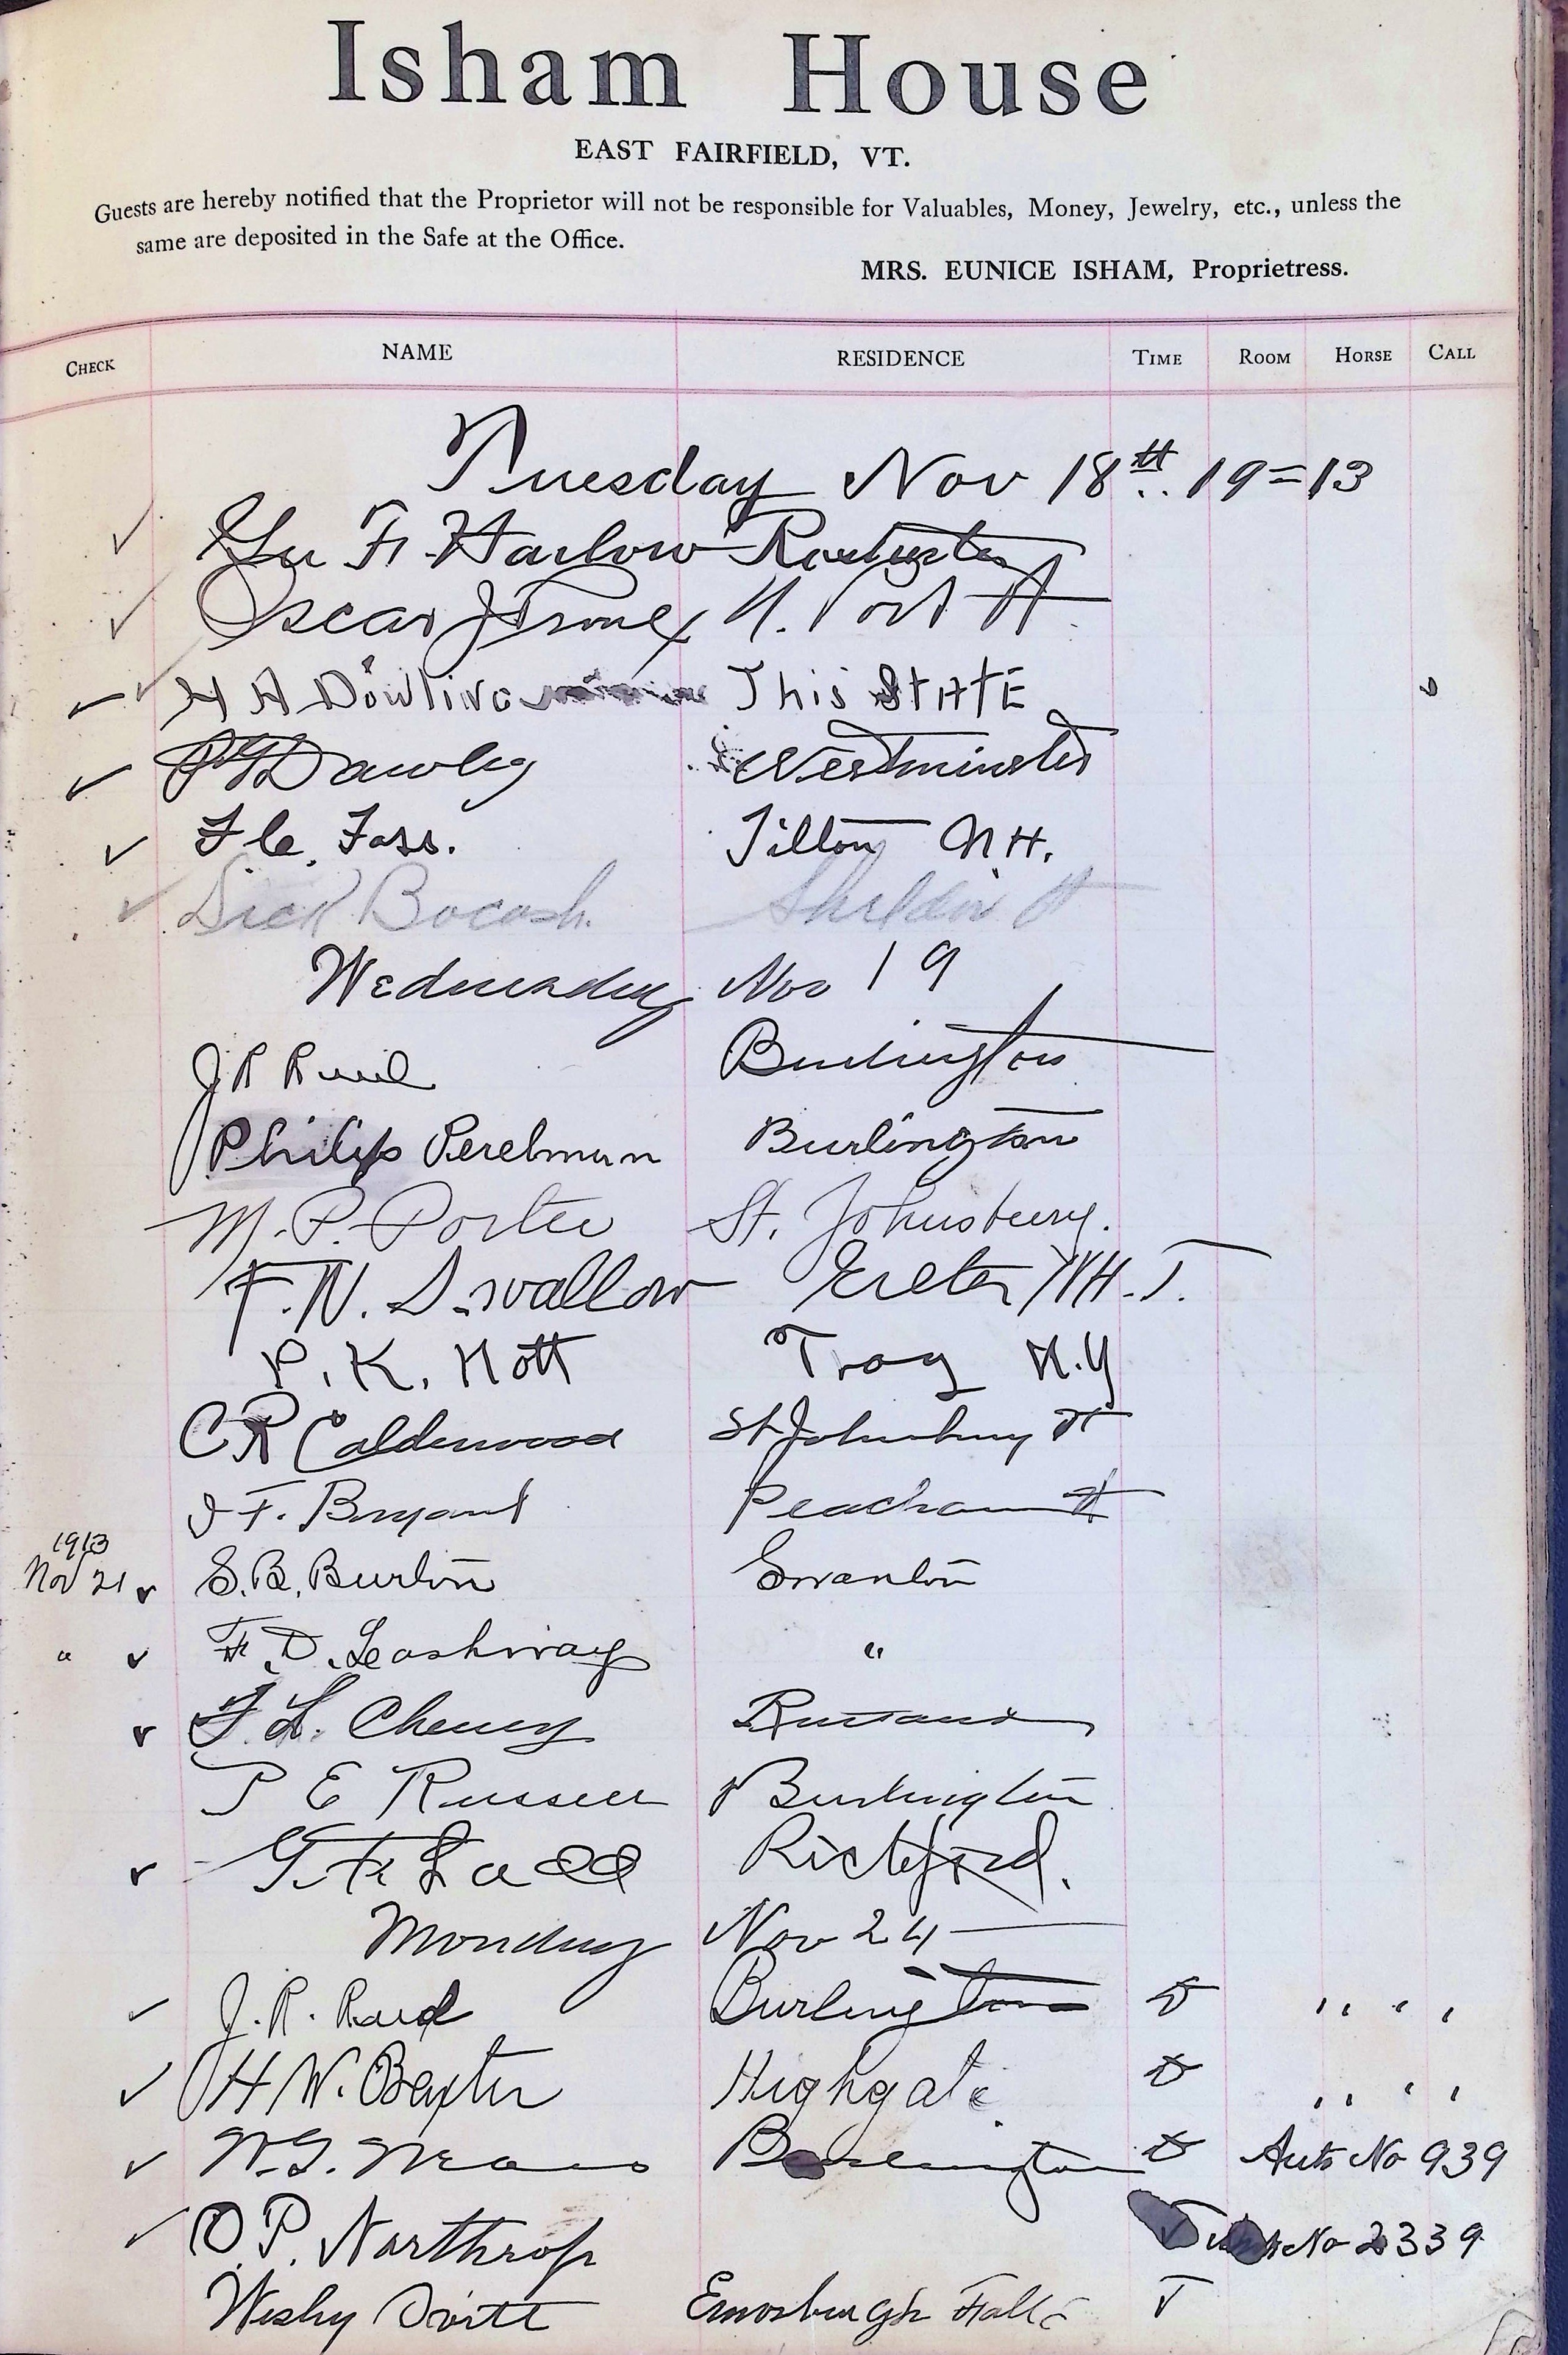 Isham House
EAST FAIRFIELD, VT.
Guests are hereby notified that the Proprietor will not be responsible for Valuables, Money, Jewelry, etc., unless the
same are deposited in the Safe at the Office.
MRS. EUNICE ISHAM, Proprietress.
CHECK NAME RESIDENCE TIME ROOM HORSE CALL
Tuesday Nov 18th 19=13
F. Harlow
Oscar J
H A Dowling This STATE
Dawley Westminster
F C. Foss. Tilton N.H.
Dick Bocash. Sheldon Vt
Wednesday Nov 19
J R Burlington
Philip Perelman Burlington
M. P. Porter St. Johnsbury.
F. N. Swallow Exeter N.H. T.
P. K. Mott Troy N.Y
C R Calderwood St Johnsbury Vt
F. Bryant Peacham Vt
1913
Nov 21 ✓ S. B. Burton Swanton
" ✓ F. D. Leashway "
✓ F. L. Cheney Rutland
P E Russell Burlington
✓ G. F. Ladd Richford.
Monday Nov 24
✓ J. R. Burlington
✓ H W. Baxter Highgate
✓ W. G. Burlington Auto No 939
✓ O. P. Northrop No 2339
Wesley Enosburgh Falls T